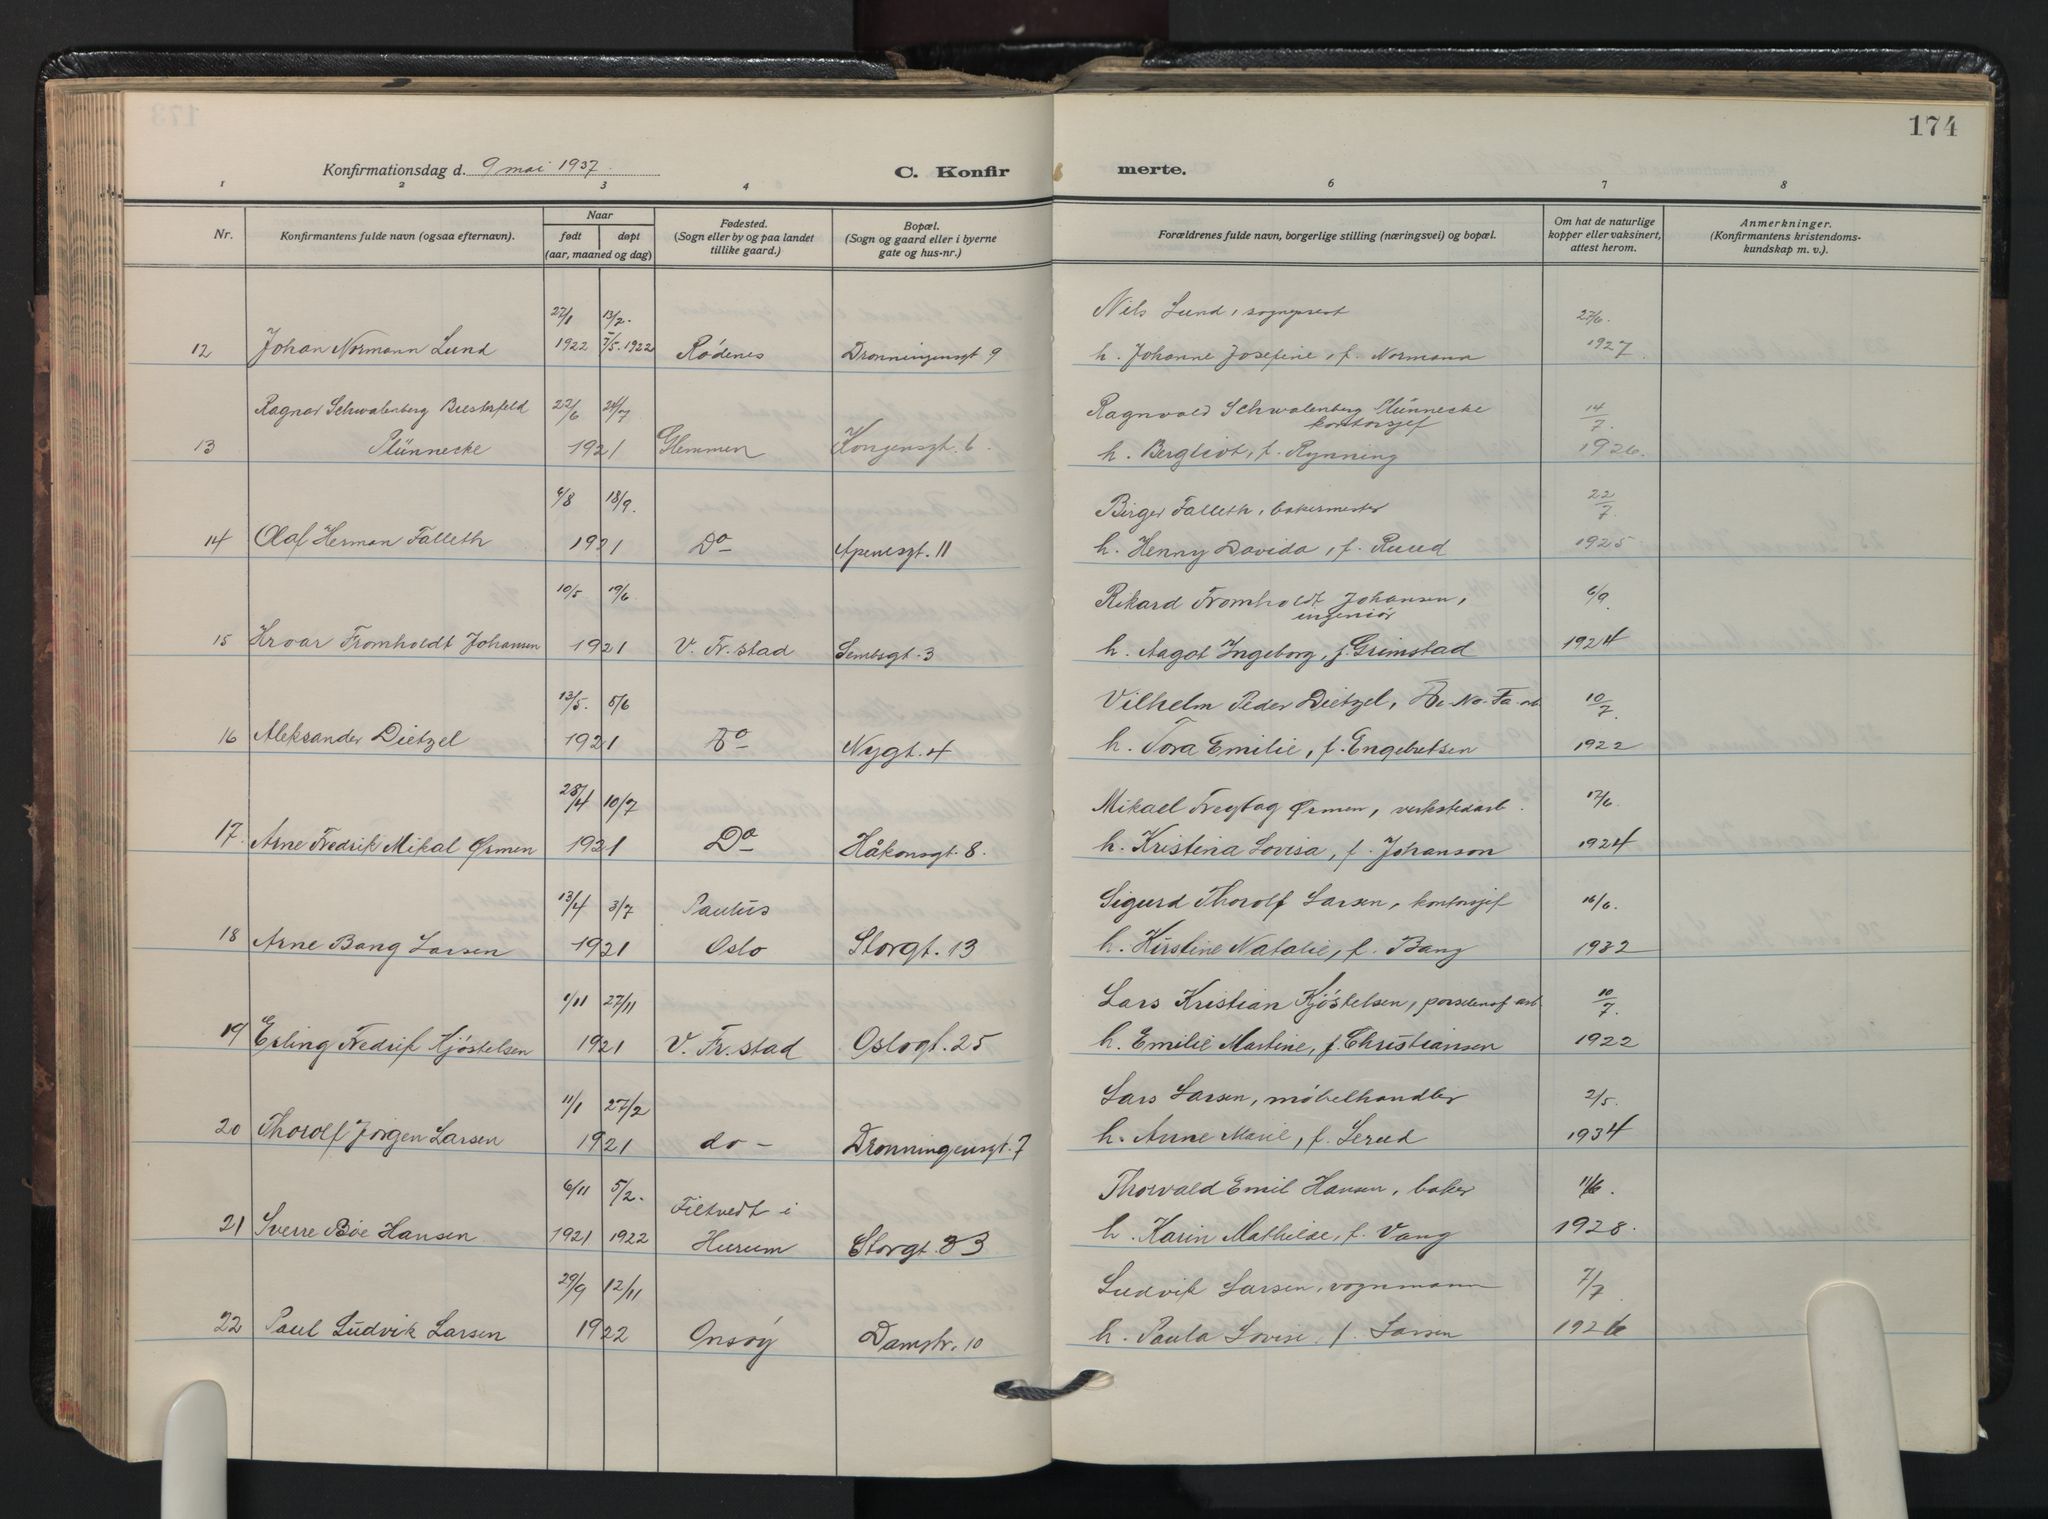 174
Konfirmationsdag d. 9 mai 1937. C. Konfir merte.
1 2 3 4 6 7 8
Nr. Konfirmantens fulde navn (ogsaa efternavn). Naar født døpt (aar, maaned og dag) Fødested. (Sogn eller by og paa landet tillike gaard.) Bopæl. (Sogn og gaard eller i byerne gate og hus-nr.) Forældrenes fulde navn, borgerlige stilling (næringsvei) og bopæl. Om hat de naturlige kopper eller vaksinert, attest herom. Anmerkninger. (Konfirmantens kristendoms- kundskap m. v.).
27/1 13/2. Nils Lund, sogneprest 27/6.
12 Johan Normann Lund 1922 7/5. 1922 Rødenes Dronningensgt 9 h. Johanne Josefine, f. Normann 1927
Ragnar Schwalenberg Biesterfeld 22/6 24/7 Ragnvald Schwalenberg Plünnecke kontorsjef 14/7.
13 Plünnecke 1921 Glemmen Kongensgt. 6. h. Bergliot, f. Rynning 1926.
6/8 18/9. Birger Falleth, bakermester 22/7.
14 Olaf Herman Falleth 1921 Do Apenesgt. 11 h. Henny Davida, f. Ruud 1925
10/5 19/6 Rikard Fromholdt Johansen, ingeniør 6/9.
15 Hroar Fromholdt Johansen 1921 V. Fr.stad Sembsgt. 3 h. Aagot Ingeborg, f. Grimstad 1924
13/5. 5/6 Vilhelm Peder Dietzel, De-No-Fa-arb 10/7.
16 Aleksander Dietzel 1921 Do Nygt. 4 h. Tora Emilie, f. Engebretsen 1922
28/4 10/7 Mikael Freytag Ørmen, verkstedarb. 12/6.
17. Arne Fredrik Mikal Ørmen 1921 Do Håkonsgt. 8. h. Kristina Lovisa, f. Johanson 1924
13/4 3/7 Paulus Sigurd Thorolf Larsen, kontorsjef 16/6.
18 Arne Bang Larsen 1921 Oslo Storgt. 13 h. Kirstine Natalie, f. Bang 1932
1/11 27/11 Lars Kristian Kjøstelsen, porselensf. arb. 10/7.
19 Erling Fredrik Kjøstelsen 1921 V. Fr.stad Oslogt. 25 h. Emilie Martine, f. Christiansen 1922
11/1 27/2 Lars Larsen, møbelhandler 2/5.
20 Thorolf Jørgen Larsen 1921 do - Dronningensgt. 7 h. Anne Marie, f. Lerud 1934
6/11 5/2. Filtvedt i Thorvald Emil Hansen, baker 11/6.
21 Sverre Bøe Hansen 1921 1922 Hurum Storgt. 33 h. Karin Mathilde, f. Vang 1928.
29/9 12/11 Ludvik Larsen, vognmann 7/7
22 Paul Ludvik Larsen 1922 Onsøy Damstr. 10 h. Paula Lovise, f. Larsen 1926